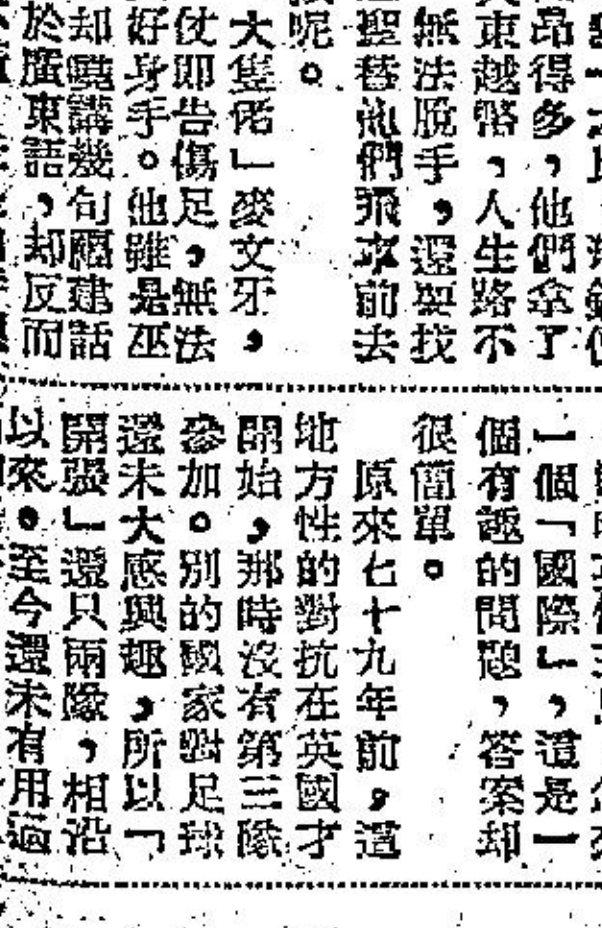 昂得多,他們拿了
東越幣,人生路不
無法脫手,還要找
聖他們飛來前去
呢。
大隻佬」麥文牙,
仗即告傷足,無法
好身手。他雖是巫
却曉講幾句福建話
於廣東語,却反而
一個「國際」,這是一
個有趣的問題,答案却
很簡單。
原來七十九年前,這
地方性的對抗在英國才
開始,那時沒有第三隊
參加。別的國家對足球
還未大感興趣,所以「
開張」還只兩隊,相沿
以來。至今還未有用過